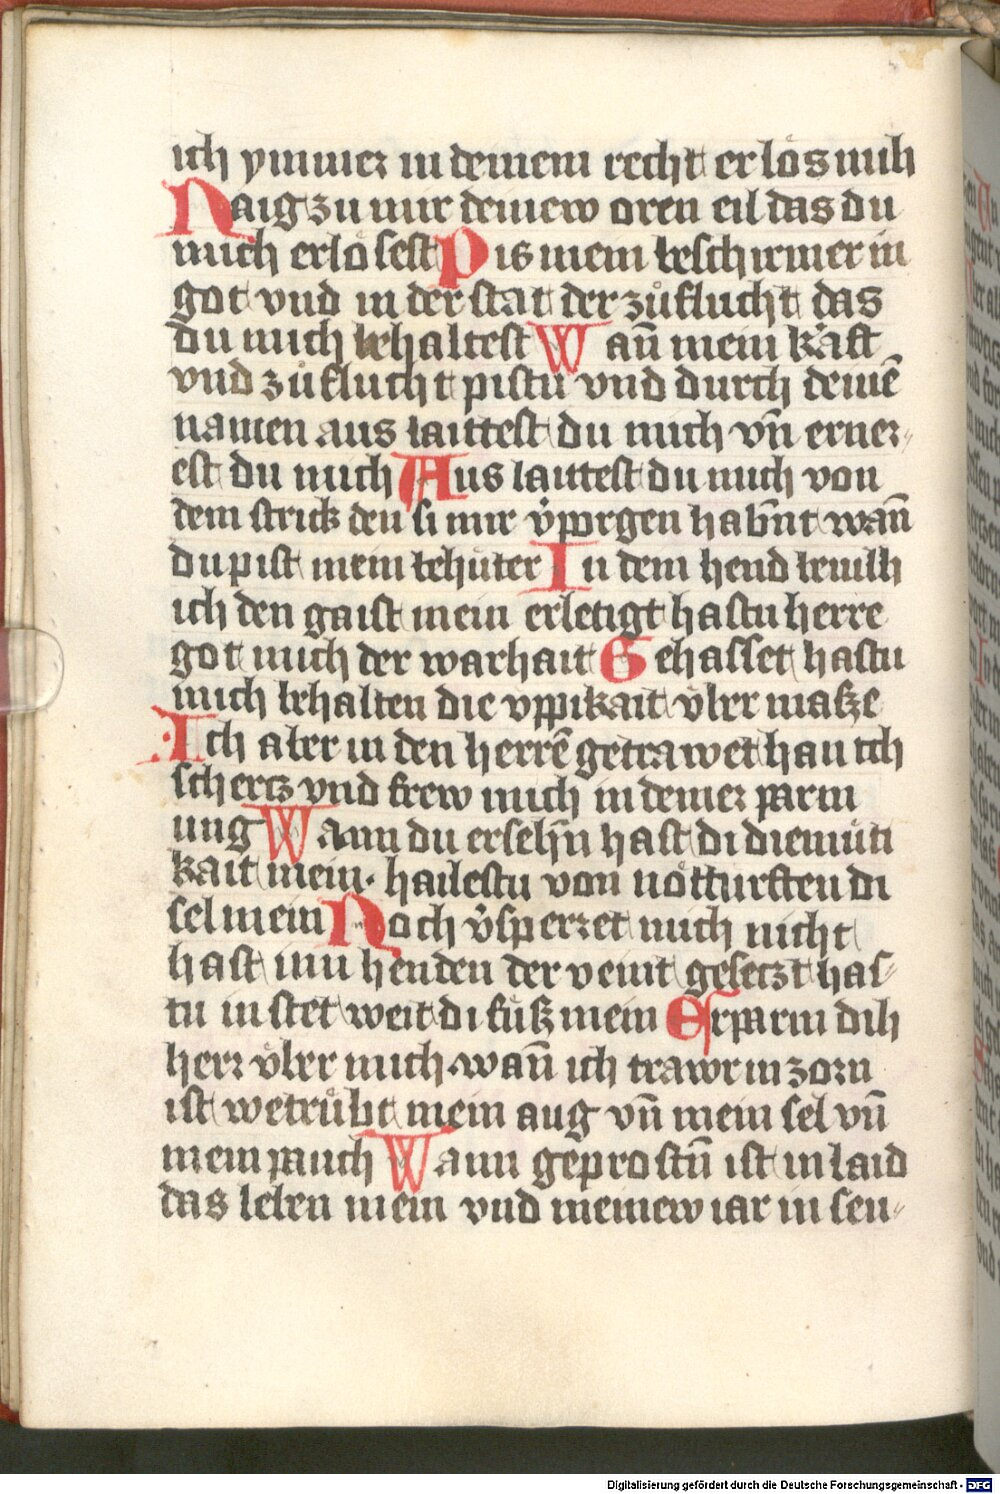 ich ymmer in deinem recht erlôs mih
Naig zu mir deinew oren eil das du
mich erlôsest Pis mein beschirmer in
got vnd in der stat der zůflucht das
du mich behaltest Wañ mein kraft
vnd zůflucht pistu vnd durch deinē
namen aus laittest du mich vñ erner-
est du mich Aus laittest du mich von
dem strick den si mir v̓porgen habñt wañ
du pist mein behůter In dein hend beuilh
ich den gaist mein erletigt hastu herre
got mich der warhait Gehasset hastu
mich behalten die vppikait vͦber masze
Ich aber in den herrē getrawet han ich
schertz vnd frew mich in deiner parm
ung Wann du ersehñ hast di diemůti
kait mein. hailestu von nôtturften di
sel mein Noch v̓sperzet mich nicht
hast inn henden der veint gesetzt has-
tu in stet weit di fůsz mein Erparm dih
herr vͦber mich. wañ ich trawr in zorn
ist wetrůbt mein aug vñ mein sel vñ
mein pauch Wann geprostñ ist in laid
das leben mein vnd meinew iar in seu-
Digitalisierung gefördert durch die Deutsche Forschungsgemeinschaft - DFG